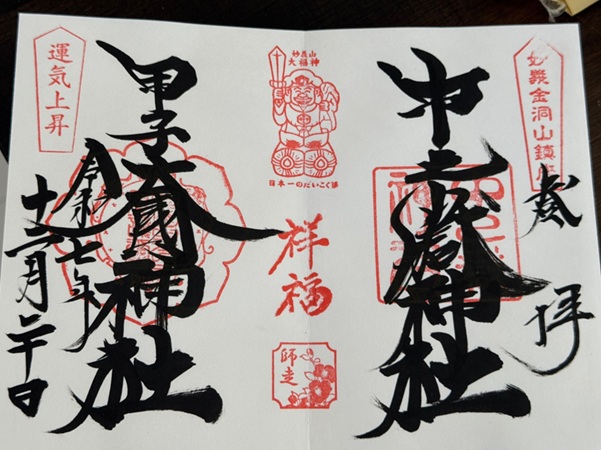 妙義金洞山鎮座
奉拝
中之嶽神社
妙義山
大福神
日本一のだいこく様
祥福
師走
甲子大國神社
運気上昇
令和七年
十二月二十日